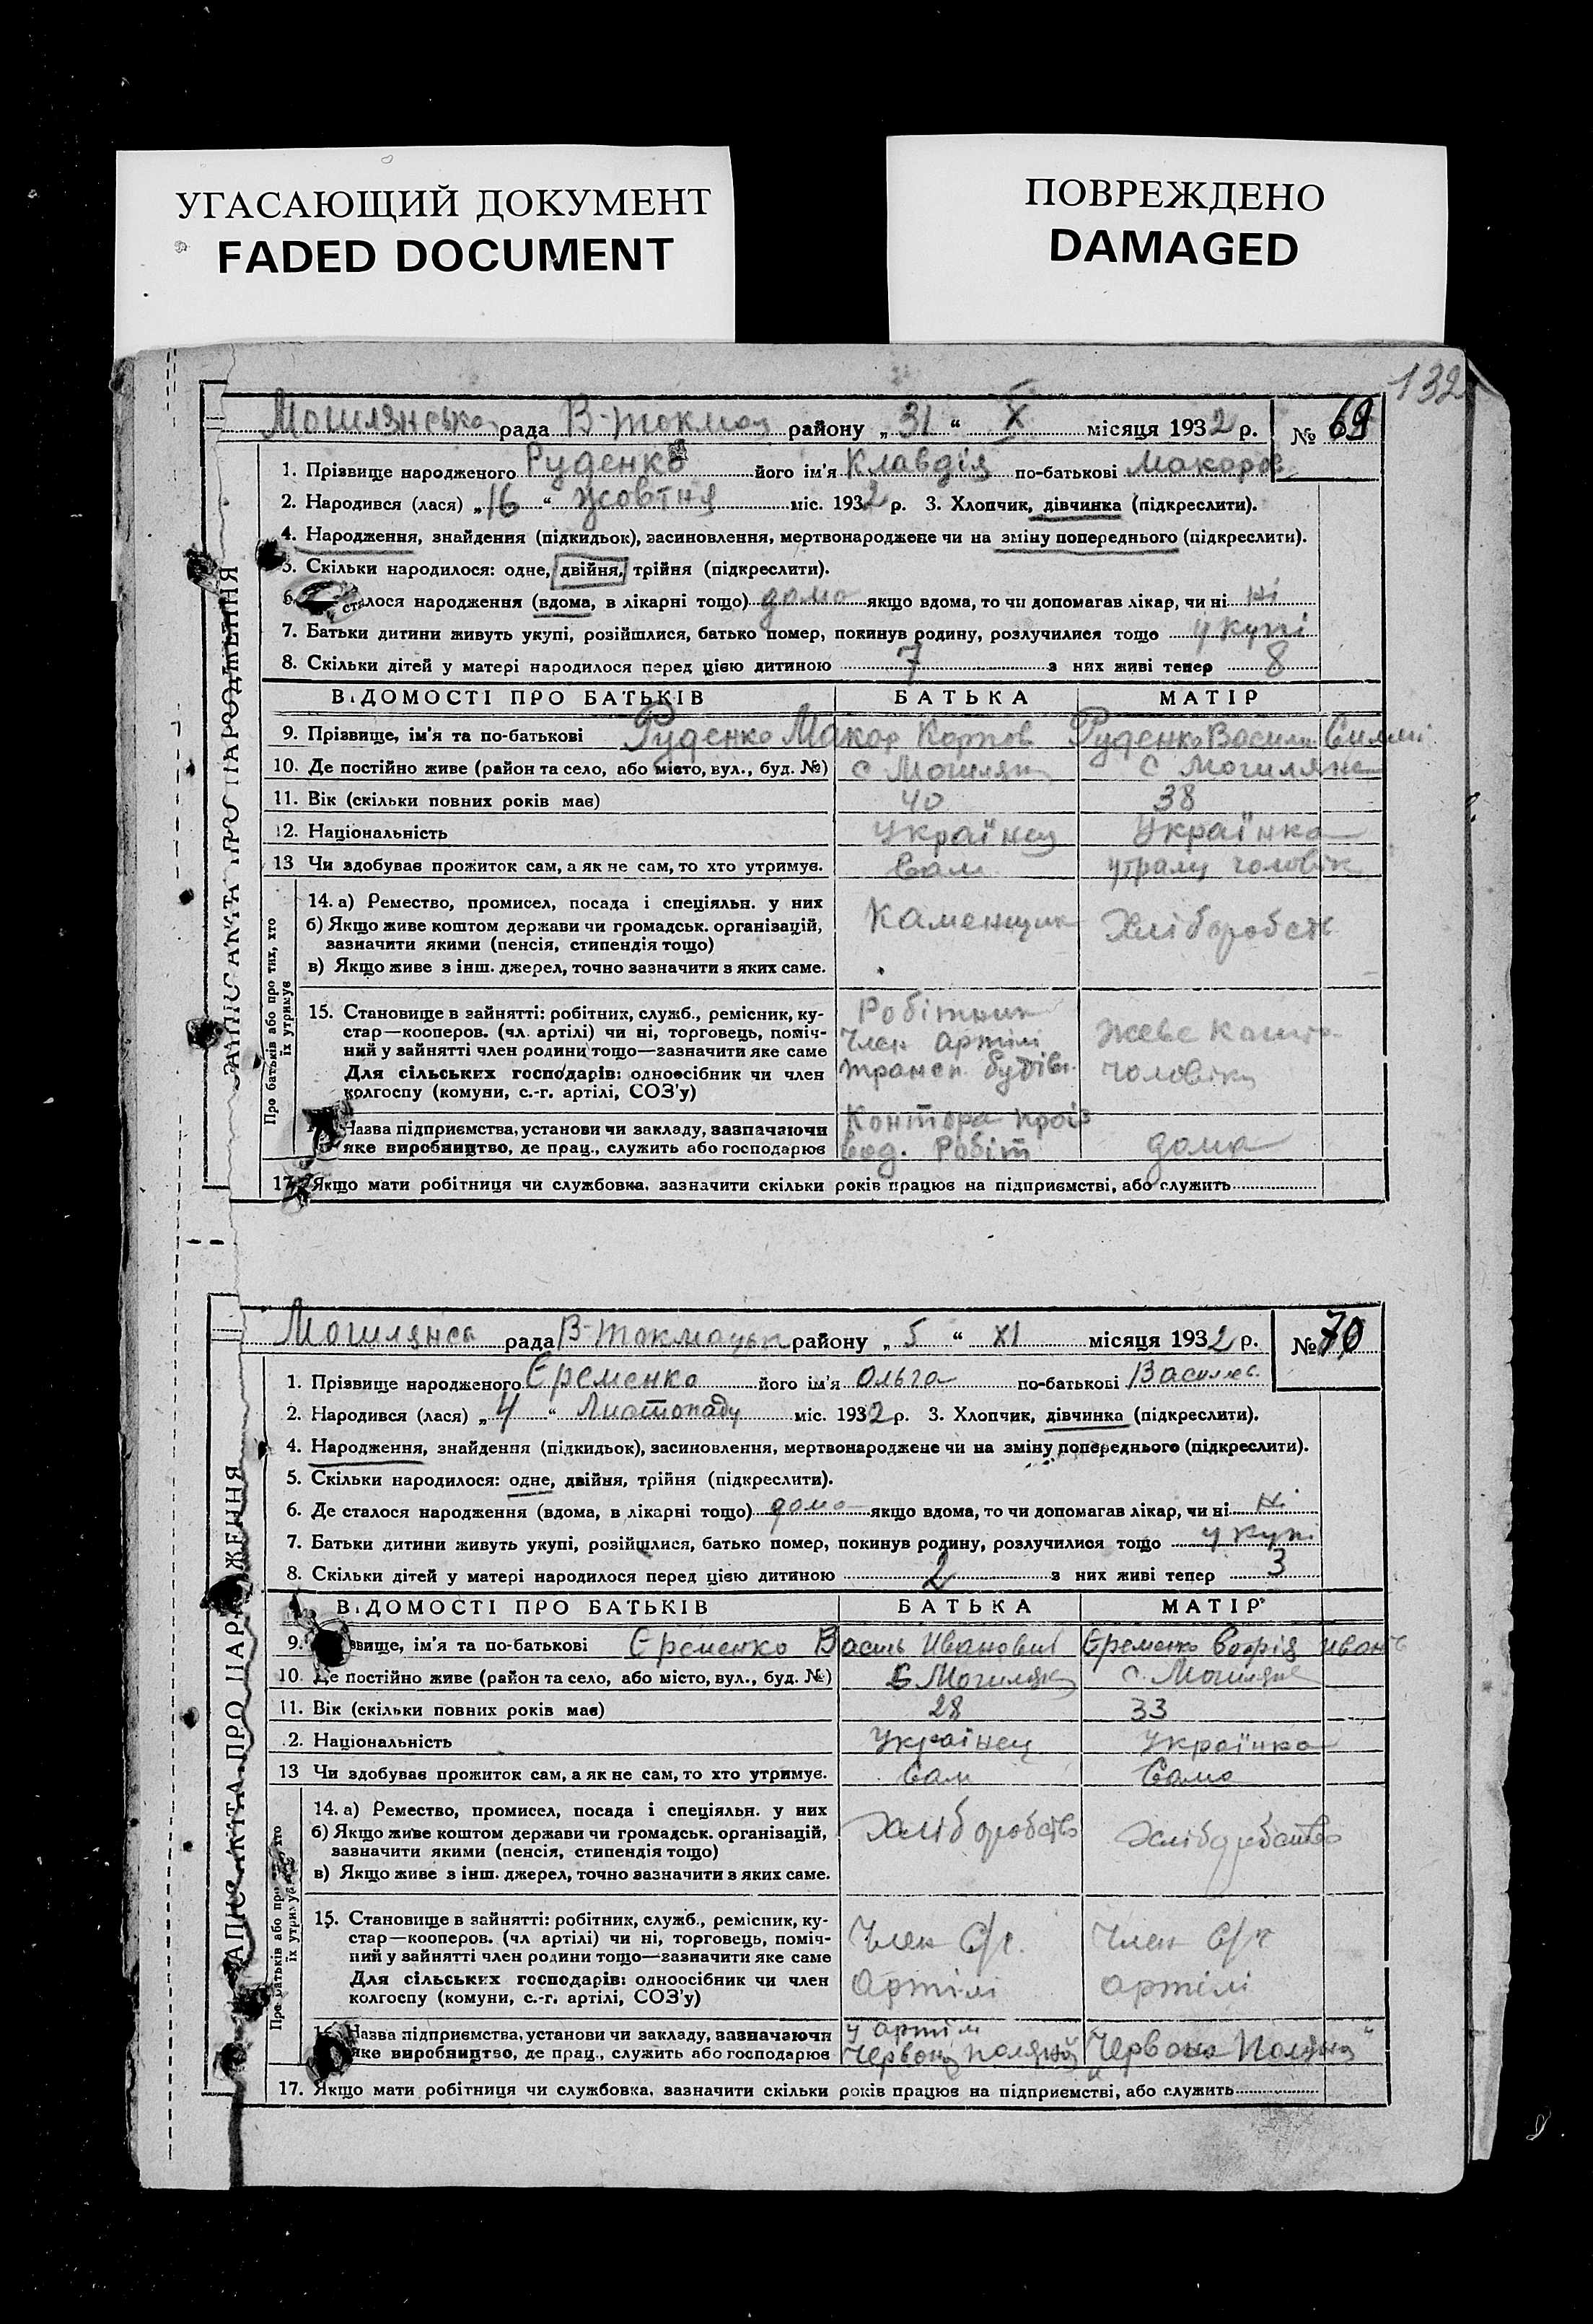 УГАСАЮЩИЙ ДОКУМЕНТ
FADED DOCUMENT
ПОВРЕЖДЕНО
DAMAGED
132
ЗАПИС АКТА ПРО НАРОДЖЕННЯ
Могилянська рада В-Токмац району „31“ X місяця 1932 р. № 69
1. Прізвище народженого Руденко його ім'я Клавдія по-батькові Макаров
2. Народився (лася) „16“ жовтня міс. 1932 р. 3. Хлопчик, дівчинка (підкреслити).
4. Народження, знайдення (підкидьок), засиновлення, мертвонароджене чи на зміну попереднього (підкреслити).
5. Скільки народилося: одне, двійня, трійня (підкреслити).
6. сталося народження (вдома, в лікарні тощо) дома якщо вдома, то чи допомагав лікар, чи ні ні
7. Батьки дитини живуть укупі, розійшлися, батько помер, покинув родину, розлучилися тощо у купі
8. Скільки дітей у матері народилося перед цією дитиною 7 з них живі тепер 8
ВІДОМОСТІ ПРО БАТЬКІВ БАТЬКА МАТІР
9. Прізвище, ім'я та по-батькові Руденко Макар Карпов Руденко
10. Де постійно живе (район та село, або місто, вул., буд. №) с Могиляни с Могиляни
11. Вік (скільки повних років має) 40 38
12. Національність Українец Українка
13 Чи здобував прожиток сам, а як не сам, то хто утримує. Сам утрим чоловік
Про батьків або про тих, хто їх утримує
14. а) Ремество, промисел, посада і спеціяльн. у них Каменщик Хліборобств
б) Якщо живе коштом держави чи громадськ. організацій,
зазначити якими (пенсія, стипендія тощо)
в) Якщо живе з інш. джерел, точно зазначити з яких саме.
15. Становище в зайнятті: робітник, служб., ремісник, ку- Робітник
стар—кооперов. (чл. артілі) чи ні, торговець, поміч- Член Артілі живе кошто
ний у зайнятті член родини тощо—зазначити яке саме
Для сільських господарів: одноосібник чи член трансп. будів. чоловіка
колгоспу (комуни, с.-г. артілі, СОЗ'у)
Назва підприємства, установи чи закладу, зазначаючи Контора проів
яке виробництво, де прац., служить або господарює вод. Робіт дома
17. Якщо мати робітниця чи службовка, зазначити скільки років працює на підприємстві, або служить
ЗАПИС АКТА ПРО НАРОДЖЕННЯ
Могилянсь рада В-Токмацьк району „5“ XI місяця 1932 р. № 70
1. Прізвище народженого Єременко його ім'я Ольга по-батькові Василев.
2. Народився (лася) „4“ Листопаду міс. 1932 р. 3. Хлопчик, дівчинка (підкреслити).
4. Народження, знайдення (підкидьок), засиновлення, мертвонароджене чи на зміну попереднього (підкреслити).
5. Скільки народилося: одне, двійня, трійня (підкреслити).
6. Де сталося народження (вдома, в лікарні тощо) дома якщо вдома, то чи допомагав лікар, чи ні ні
7. Батьки дитини живуть укупі, розійшлися, батько помер, покинув родину, розлучилися тощо у куп.
8. Скільки дітей у матері народилося перед цією дитиною 2 з них живі тепер 3
ВІДОМОСТІ ПРО БАТЬКІВ БАТЬКА МАТІР
9. звище, ім'я та по-батькові Єременко Василь Иванович Єременко Софія Иван
10. Де постійно живе (район та село, або місто, вул., буд. №) с Могиляни с. Могиляни
11. Вік (скільки повних років має) 28 33
2. Національність Українец Українка
13 Чи здобував прожиток сам, а як не сам, то хто утримує. Сам Сама
Про батьків або про хто їх утримує
14. а) Ремество, промисел, посада і спеціяльн. у них Хліборобство Хліборобство
б) Якщо живе коштом держави чи громадськ. організацій,
зазначити якими (пенсія, стипендія тощо)
в) Якщо живе з інш. джерел, точно зазначити з яких саме.
15. Становище в зайнятті: робітник, служб., ремісник, ку-
стар—кооперов. (чл артілі) чи ні, торговець, поміч- Член С/г. Член С/г
ний у зайнятті член родини тощо—зазначити яке саме
Для сільських господарів: одноосібник чи член Артілі артілі
колгоспу (комуни, с.-г. артілі, СОЗ'у)
16. Назва підприємства, установи чи закладу, зазначаючи у артіл
яке виробництво, де прац., служить або господарює Червона Поляна „Червона Поляна“
17. Якщо мати робітниця чи службовка, зазначити скільки років працює на підприємстві, або служить